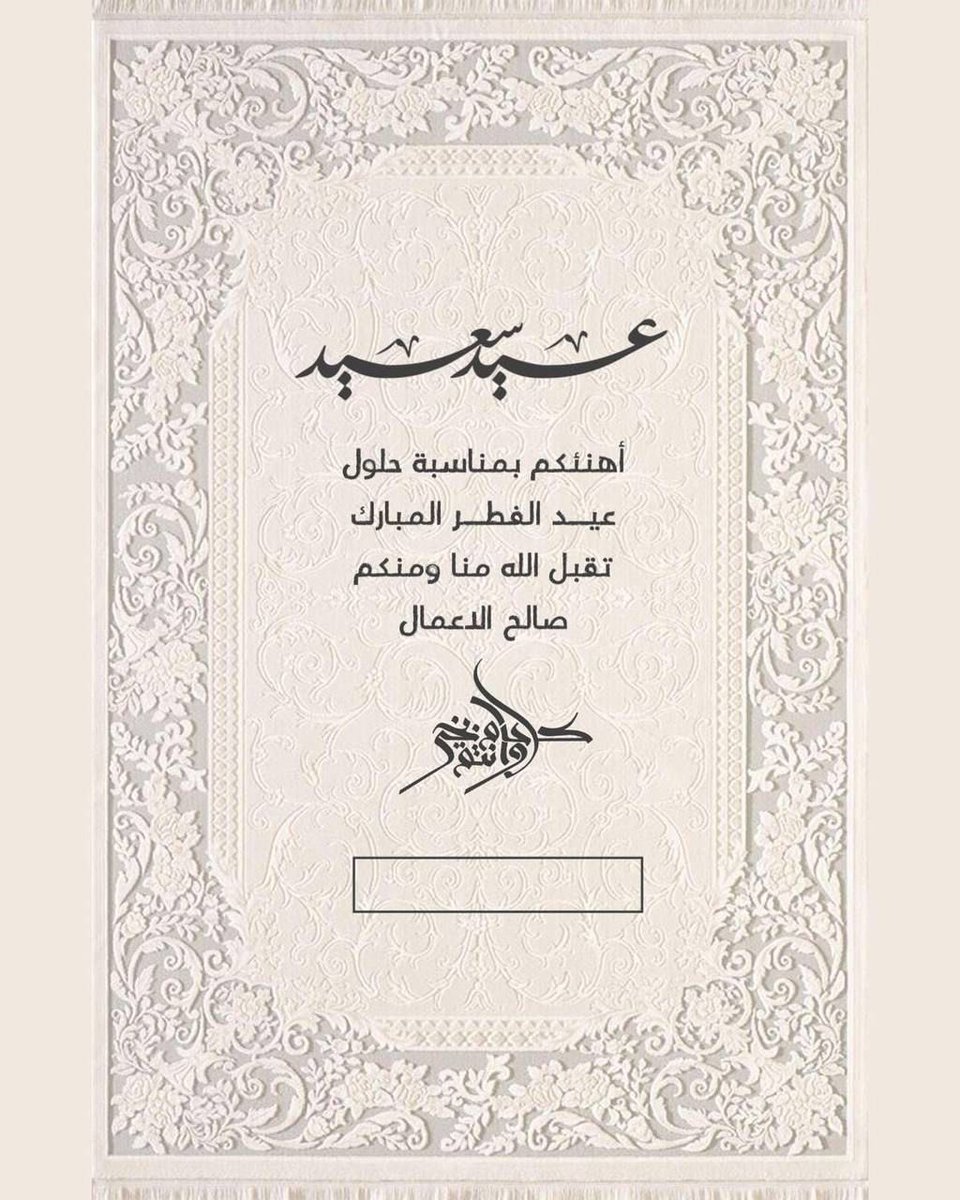 عيد سعيد
أهنئكم بمناسبة حلول
عيــد الفطــر المبارك
تقبل الله منا ومنكم
صالح الاعمال
كل عام وانتم بخير